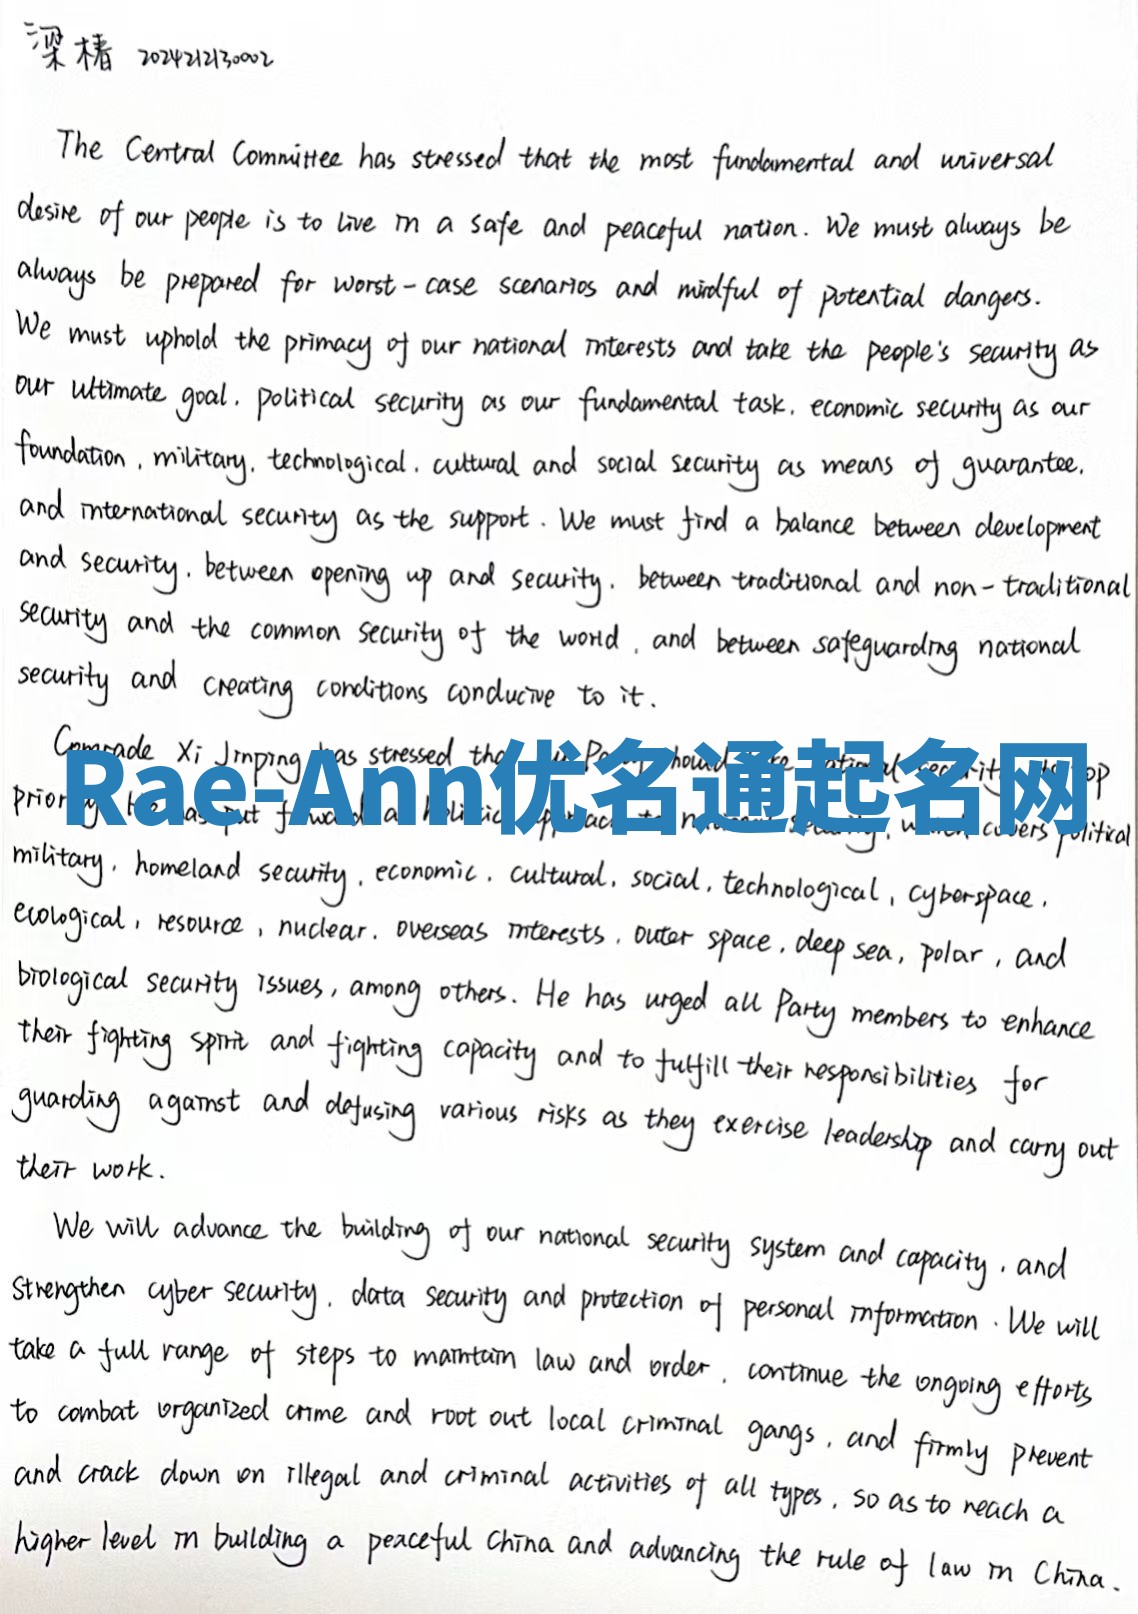 梁椿 2024212130002
The Central Committee has stressed that the most fundamental and universal
desire of our people is to live in a safe and peaceful nation. We must always be
always be prepared for worst-case scenarios and mindful of potential dangers.
We must uphold the primacy of our national interests and take the people's security as
our ultimate goal, political security as our fundamental task, economic security as our
foundation, military, technological, cultural and social security as means of guarantee,
and international security as the support. We must find a balance between development
and security, between opening up and security, between traditional and non-traditional
security and the common security of the world, and between safeguarding national
security and creating conditions conducive to it.
Comrade Xi Jinping has stressed
Rae-Ann优名通起名网
put a covers political
military, homeland security, economic, cultural, social, technological, cyberspace,
ecological, resource, nuclear, overseas interests, outer space, deep sea, polar, and
biological security issues, among others. He has urged all Party members to enhance
their fighting spirit and fighting capacity and to fulfill their responsibilities for
guarding against and defusing various risks as they exercise leadership and carry out
their work.
We will advance the building of our national security system and capacity, and
strengthen cyber security, data security and protection of personal information. We will
take a full range of steps to maintain law and order, continue the ongoing efforts
to combat organized crime and root out local criminal gangs, and firmly prevent
and crack down on illegal and criminal activities of all types, so as to reach a
higher level in building a peaceful China and advancing the rule of law in China.